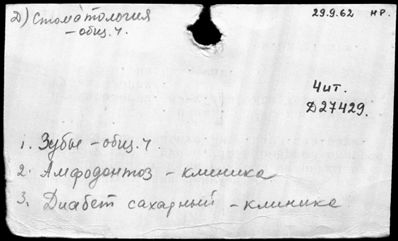 Д) Стоматология
29.9.62 нр.
– общ. ч.
Чит.
Д27429.
1. Зубы – общ. ч.
2. Амфодонтоз – клиника
3. Диабет сахарный – клиника